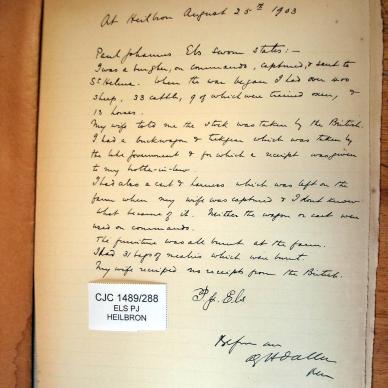 At Heilbron August 25th 1903
Paul Johannes Els sworn states:—
I was a burgher, on commando, captured, & sent to
St Helena. When the war began I had over 400
sheep, 33 cattle, 9 of which were trained oxen, &
13 horses.
My wife told me the stock was taken by the British.
I had a buckwagon & which was taken by
the late Government & for which a receipt was given
to my mother-in-law.
I had also a cart & harness which was left on the
farm when my wife was captured & I don't know
what became of it. Neither the wagon or cart were
used on commando.
The furniture was all burnt at the farm.
I had 31 bags of mealies which were burnt.
My wife received no receipts from the British.
P. J. Els
CJC 1489/288
ELS PJ
HEILBRON
Before me